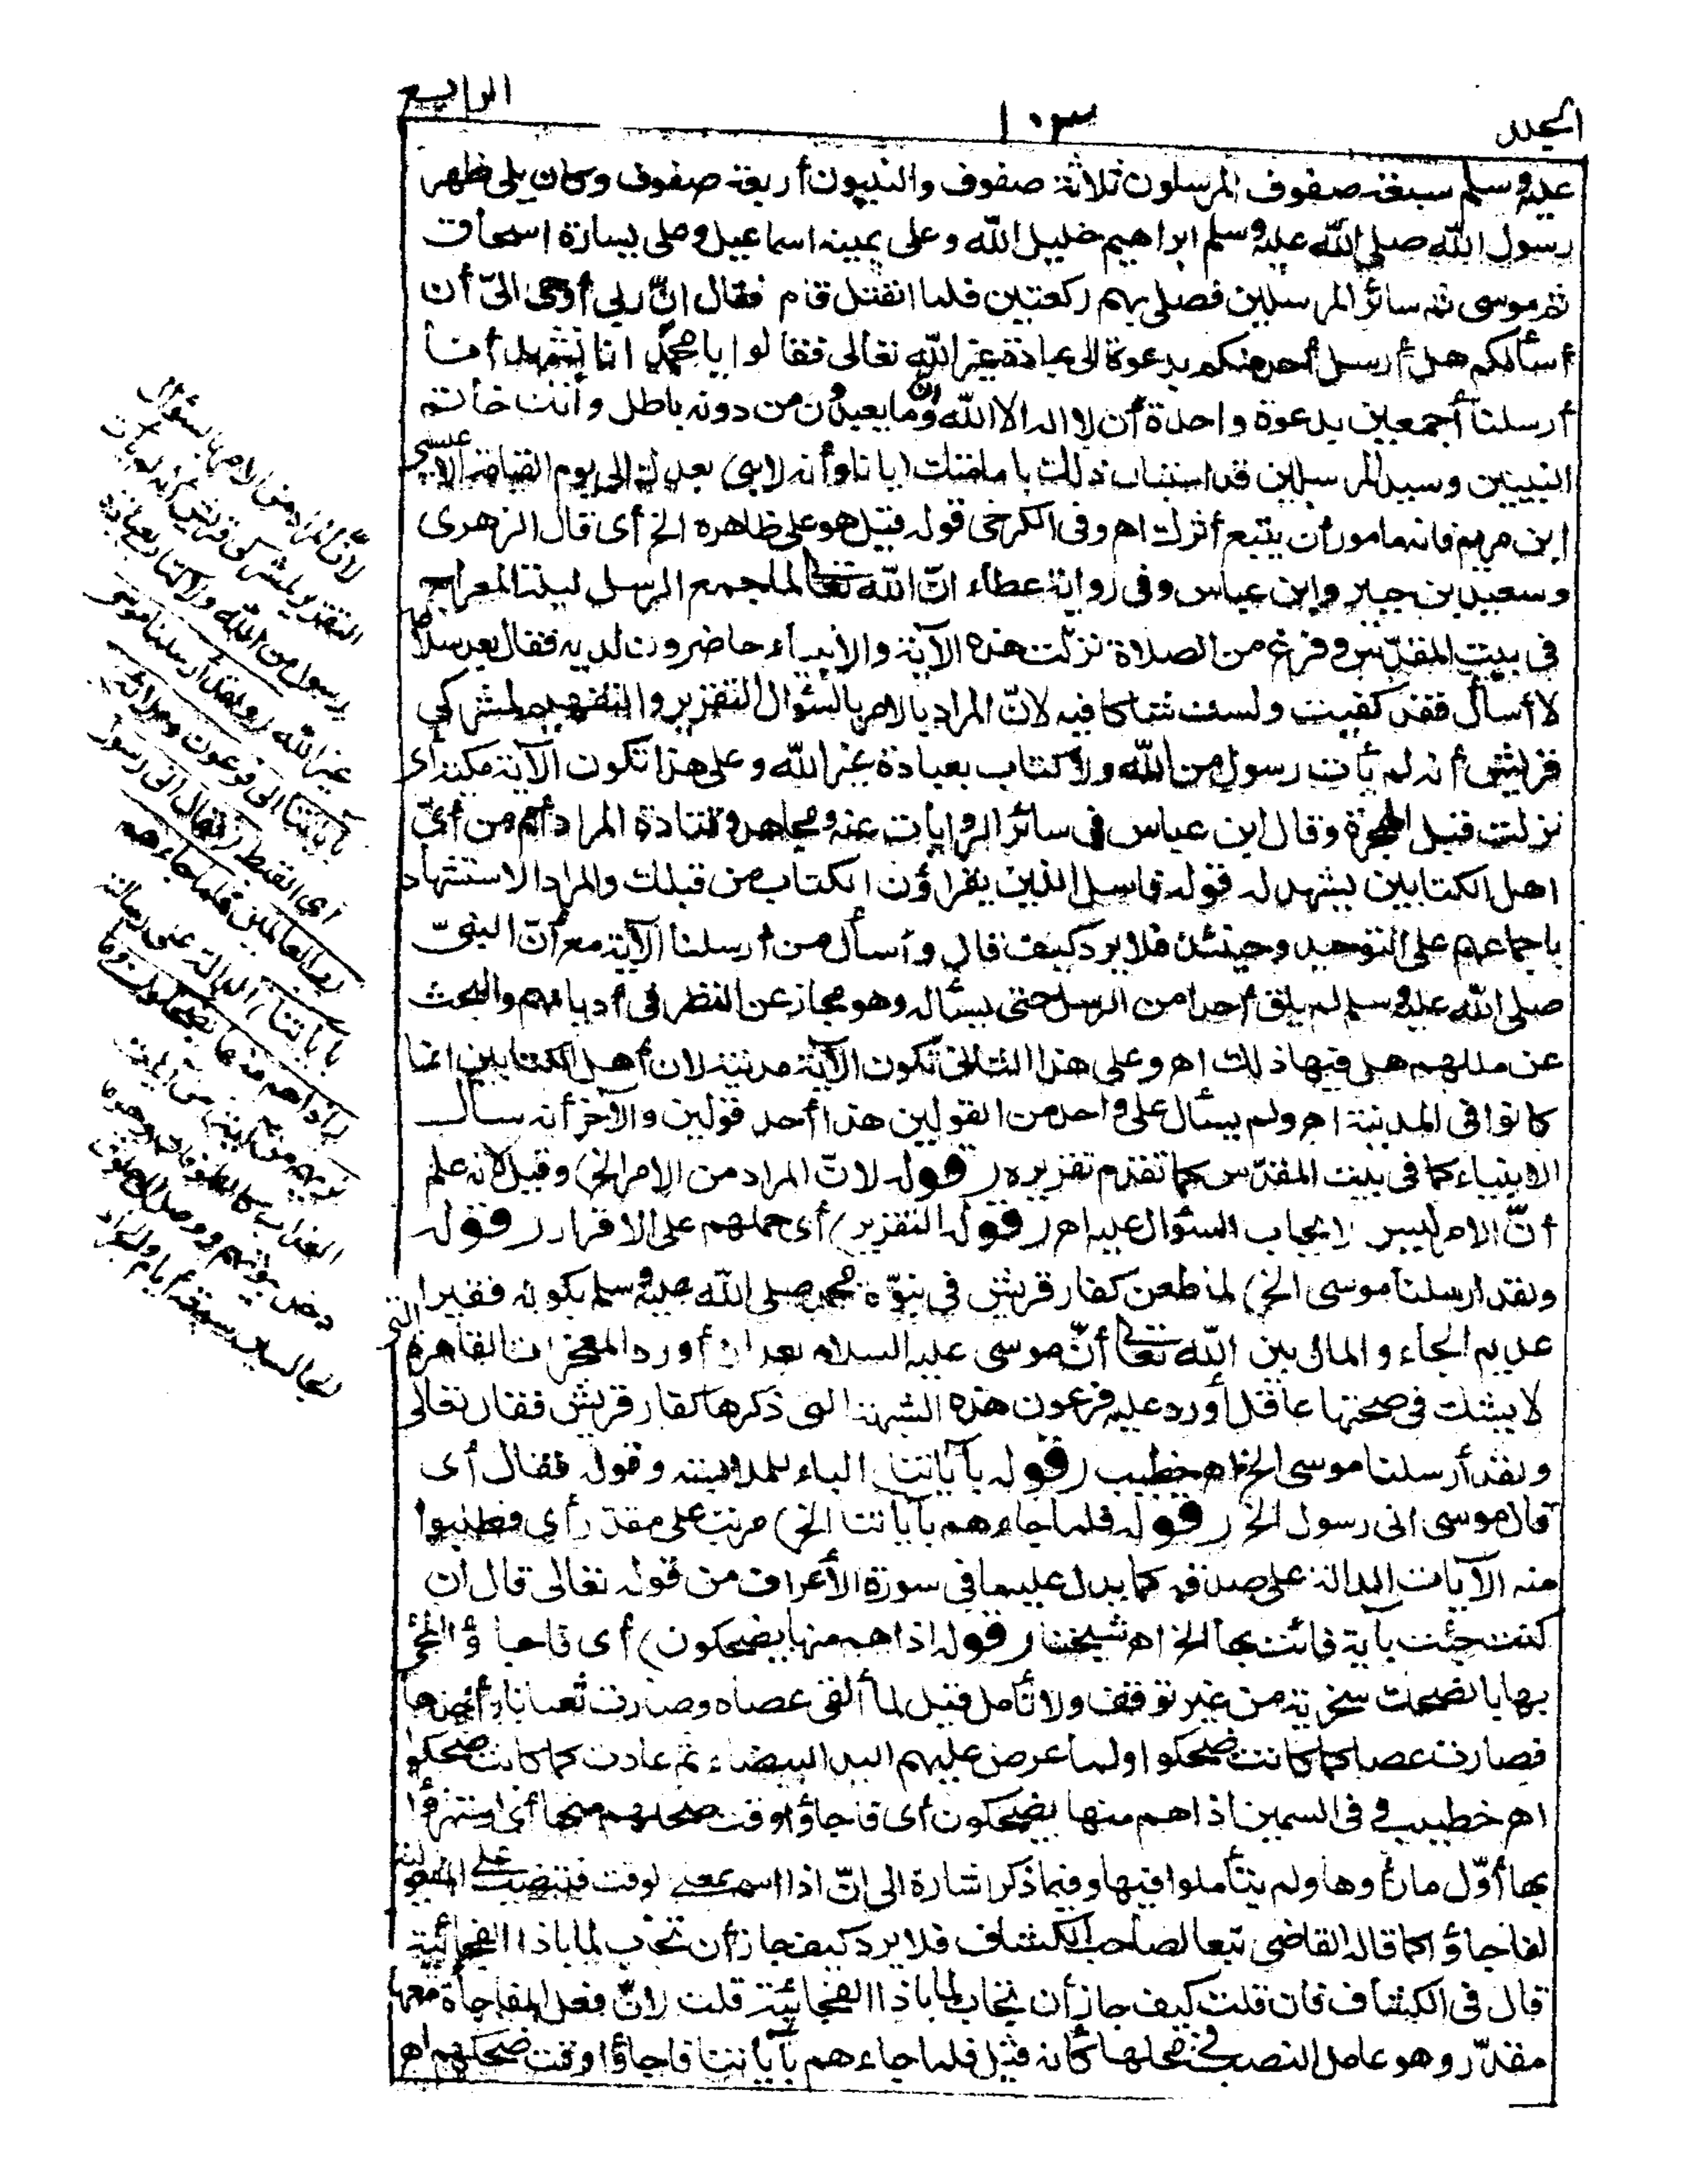 المجلد ١٠٣ الرابع
عليه وسلم سبعة صفوف المرسلون ثلاثة صفوف والنبيون أربعة صفوف وكان يلى ظهر
رسول الله صلى الله عليه وسلم ابراهيم خليل الله وعلى يمينه اسماعيل وعلى يساره اسحاق
ثم موسى ثم سائر المرسلين فصلى بهم ركعتين فلما انفتل قام فقال انّ ربى أوحى الىّ أن
أسألكم هل أرسل أحد منكم بدعوة الى عبادة غير الله تعالى فقالوا يا محمد انا نشهد أنا
أرسلنا أجمعين بدعوة واحدة أن لا اله الا الله وأن ما يعبدون من دونه باطل وأنت خاتم
النبيين وسيد المرسلين قد استبان ذلك بامامتك ايانا وأنه لا نبى بعدك الى يوم القيامة الا عيسى
ابن مريم فانه مامور أن يتبع أثرك اه وفى الكرخى قوله قيل هو على ظاهره الخ أى قال الزهرى
وسعيد بن جبير وابن عباس وفى رواية عطاء انّ الله تعالى لما جمع الرسل ليلة المعراج
فى بيت المقدّس وفرغ من الصلاة نزلت هذه الآية والأنبياء حاضرون لديه فقال بعد سلام
لا أسأل فقد كفيت ولست شاكا فيه لانّ المراد بالامر بالسؤال التقرير والتفهيم لمشركى
قريش أنه لم يأت رسول من الله ولا كتاب بعبادة غير الله وعلى هذا تكون الآية مكية أى
نزلت قبل الهجرة وقال ابن عباس فى سائر الروايات عنه ومجاهد وقتادة المراد أمم من أىّ
اهل الكتابين يشهد له قوله فاسل الذين يقراؤن الكتاب من قبلك والمراد الاستشهاد
باجماعهم على التوحيد وحينئذ فلا يرد كيف قال وأسأل من أرسلنا الآية مع أنّ النبىّ
صلى الله عليه وسلم لم يلق أحدا من الرسل حتى يسأله وهو مجاز عن النظر فى أديانهم والبحث
عن مللهم هل فيها ذلك اه وعلى هذا الثانى تكون الآية مدنية لان أهل الكتابين انما
كانوا فى المدينة اه ولم يسأل على واحد من القولين هذا أحد قولين والآخر أنه سأل
الانبياء كما فى بيت المقدّس كما تقدم تقريره (قوله لانّ المراد من الامر الخ) وقيل لانه علم
أنّ الامر ليس لايجاب السؤال عليه اه (قوله التقرير) أى حملهم على الاقرار (قوله
ولقد ارسلنا موسى الخ) لما طعن كفار قريش فى نبوّة محمد صلى الله عليه وسلم بكونه فقيرا
عديم الجاه والمال بين الله تعالى أنّ موسى عليه السلام بعد ان أورد المعجزات القاهرة التى
لا يشك فى صحتها عاقل أورد عليه فرعون هذه الشبهة التى ذكرها كفار قريش فقال تعالى
ولقد أرسلنا موسى الخ اه خطيب (قوله بآياتنا) الباء للملابسة وقوله فقال أى
قال موسى انى رسول الخ (قوله فلما جاءهم بآياتنا الخ) مرتب على مقدّر أى فطلبوا
منه الآيات الدالة على صدقه كما يدل عليه ما فى سورة الأعراف من قوله تعالى قال ان
كنت جئت بآية فائت بها الخ اه شيخنا (قوله اذا هم منها يضحكون) أى فاجاؤ المجئ
بها بالضحك سخرية من غير توقف ولا تأمل قيل لما ألقى عصاه وصارت ثعبانا وأخذها
فصارت عصا كما كانت ضحكوا ولما عرض عليهم اليد البيضاء ثم عادت كما كانت ضحكوا
اه خطيب وفى السمين اذا هم منها يضحكون أى فاجاؤا وقت ضحكهم منها أى استهزؤا
بها أوّل ما رأوها ولم يتأملوا فيها وفيما ذكر اشارة الى انّ اذا اسم بمعنى لوقت فتنصب على المفعولية
لفاجاؤا كما قاله القاضى تبعا لصاحب الكشاف فلا يرد كيف جاز أن تجاب لما باذا الفجائية
قال فى الكشاف فان قلت كيف جاز أن تجاب لما باذا الفجائية قلت لانّ فعل المفاجأة معها
مقدّر وهو عامل النصب فى محلها كأنه قيل فلما جاءهم بآياتنا فاجاؤا وقت ضحكهم اه
لانّ المراد من الامر بالسؤال
التقرير لمشركى قريش أنه لم يأت
رسول من الله ولا كتاب بعبادة
غير الله (ولقد أرسلنا موسى
بآياتنا الى فرعون وملائه)
أى القبط (فقال انى رسول
رب العالمين فلما جاءهم
بآياتنا) الدالة على رسالته
(اذا هم منها يضحكون وما
نريهم من آية) من آيات
العذاب كالطوفان وهو ماء
دخل بيوتهم ووصل الى حلوق
الجالسين سبعة أيام والجراد